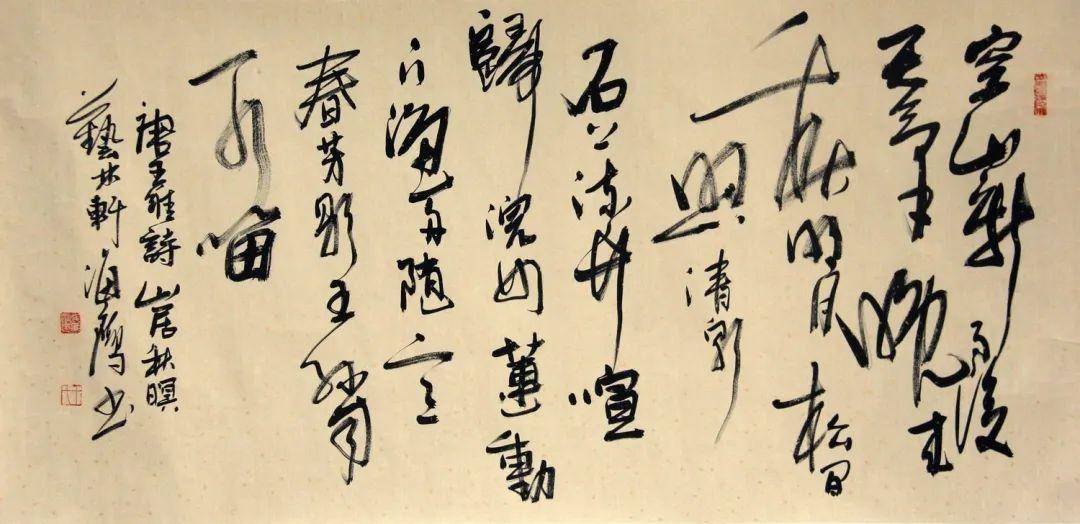 空山新雨後
天氣晚來
秋明月松間
照清泉
石上流竹喧
歸浣女蓮動
下漁舟隨意
春芳歇王孫
可留
唐王維詩山居秋暝
藝林軒海鷹書